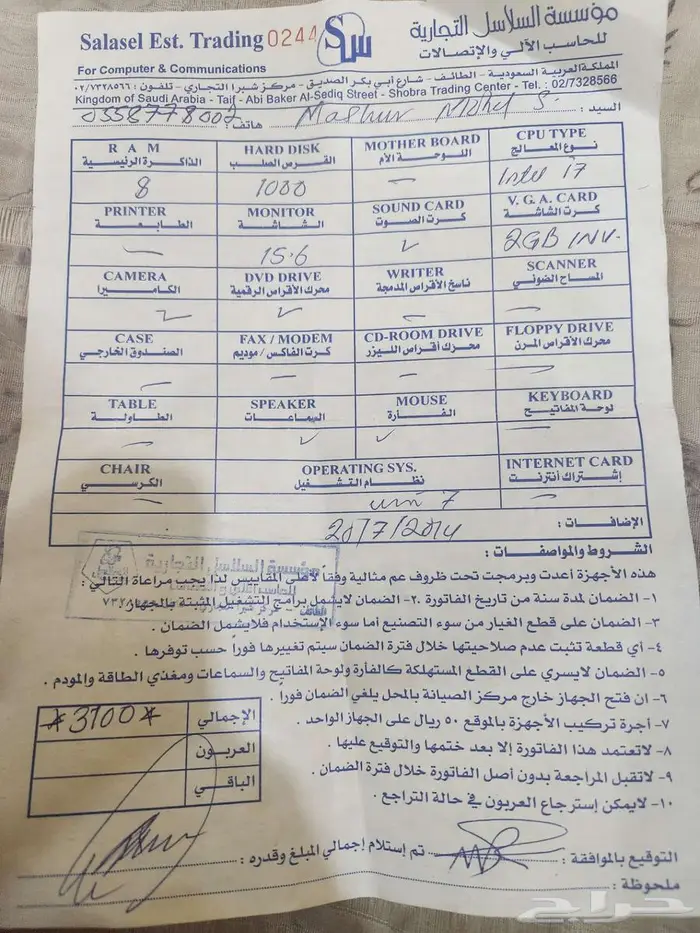 مؤسسة السلاسل التجارية
للحاسب الآلي والإتصالات
Salasel Est. Trading 0244
For Computer & Communications
المملكة العربية السعودية - الطائف - شارع أبي بكر الصديق - مركز شبرا التجاري - تلفون : ٠٢/٧٣٢٨٥٦٦
Kingdom of Saudi Arabia - Taif - Abi Baker Al-Sediq Street - Shobra Trading Center - Tel. : 02/7328566
السيد : Mashur Mohd S. هاتف : 0558778002
RAM HARD DISK MOTHER BOARD CPU TYPE
الذاكرة الرئيسية القرص الصلب اللوحة الأم نوع المعالج
8 1000 — Intel i7
PRINTER MONITOR SOUND CARD V. G. A. CARD
الطابعة الشاشة كرت الصوت كرت الشاشة
— 15.6 ✓ 2GB INV.
CAMERA DVD DRIVE WRITER SCANNER
الكاميرا محرك الأقراص الرقمية ناسخ الأقراص المدمجة الماسح الضوئي
✓ ✓ — —
CASE FAX / MODEM CD-ROOM DRIVE FLOPPY DRIVE
الصندوق الخارجي كرت الفاكس / موديم محرك أقراص الليزر محرك الأقراص المرن
— — — —
TABLE SPEAKER MOUSE KEYBOARD
الطاولة السماعات الفأرة لوحة المفاتيح
— ✓ ✓ —
CHAIR OPERATING SYS. INTERNET CARD
الكرسي نظام التشغيل إشتراك أنترنت
— win 7 —
الإضافات : 20/7/2014
مؤسسة السلاسل التجارية
الشروط والمواصفات :
هذه الأجهزة أعدت وبرمجت تحت ظروف عم مثالية وفقاً لأعلى المقاييس لذا يجب مراعاة التالي :
١- الضمان لمدة سنة من تاريخ الفاتورة ٢- الضمان لايشمل برامج التشغيل المثبتة بالجهاز
٣- الضمان على قطع الغيار من سوء التصنيع أما سوء الإستخدام فلايشمل الضمان .
٤- أي قطعة تثبت عدم صلاحيتها خلال فترة الضمان سيتم تغييرها فوراً حسب توفرها .
٥- الضمان لايسري على القطع المستهلكة كالفأرة ولوحة المفاتيح والسماعات ومغذي الطاقة والمودم .
٦- ان فتح الجهاز خارج مركز الصيانة بالمحل يلغي الضمان فوراً .
٧- أجرة تركيب الأجهزة بالموقع ٥٠ ريال على الجهاز الواحد .
٨- لاتعتمد هذا الفاتورة إلا بعد ختمها والتوقيع عليها .
٩- لاتقبل المراجعة بدون أصل الفاتورة خلال فترة الضمان .
١٠- لايمكن إسترجاع العربون في حالة التراجع .
الإجمالي *3700*
العربون
الباقي
التوقيع بالموافقة : تم إستلام إجمالي المبلغ وقدره :
ملحوظة :
حراج